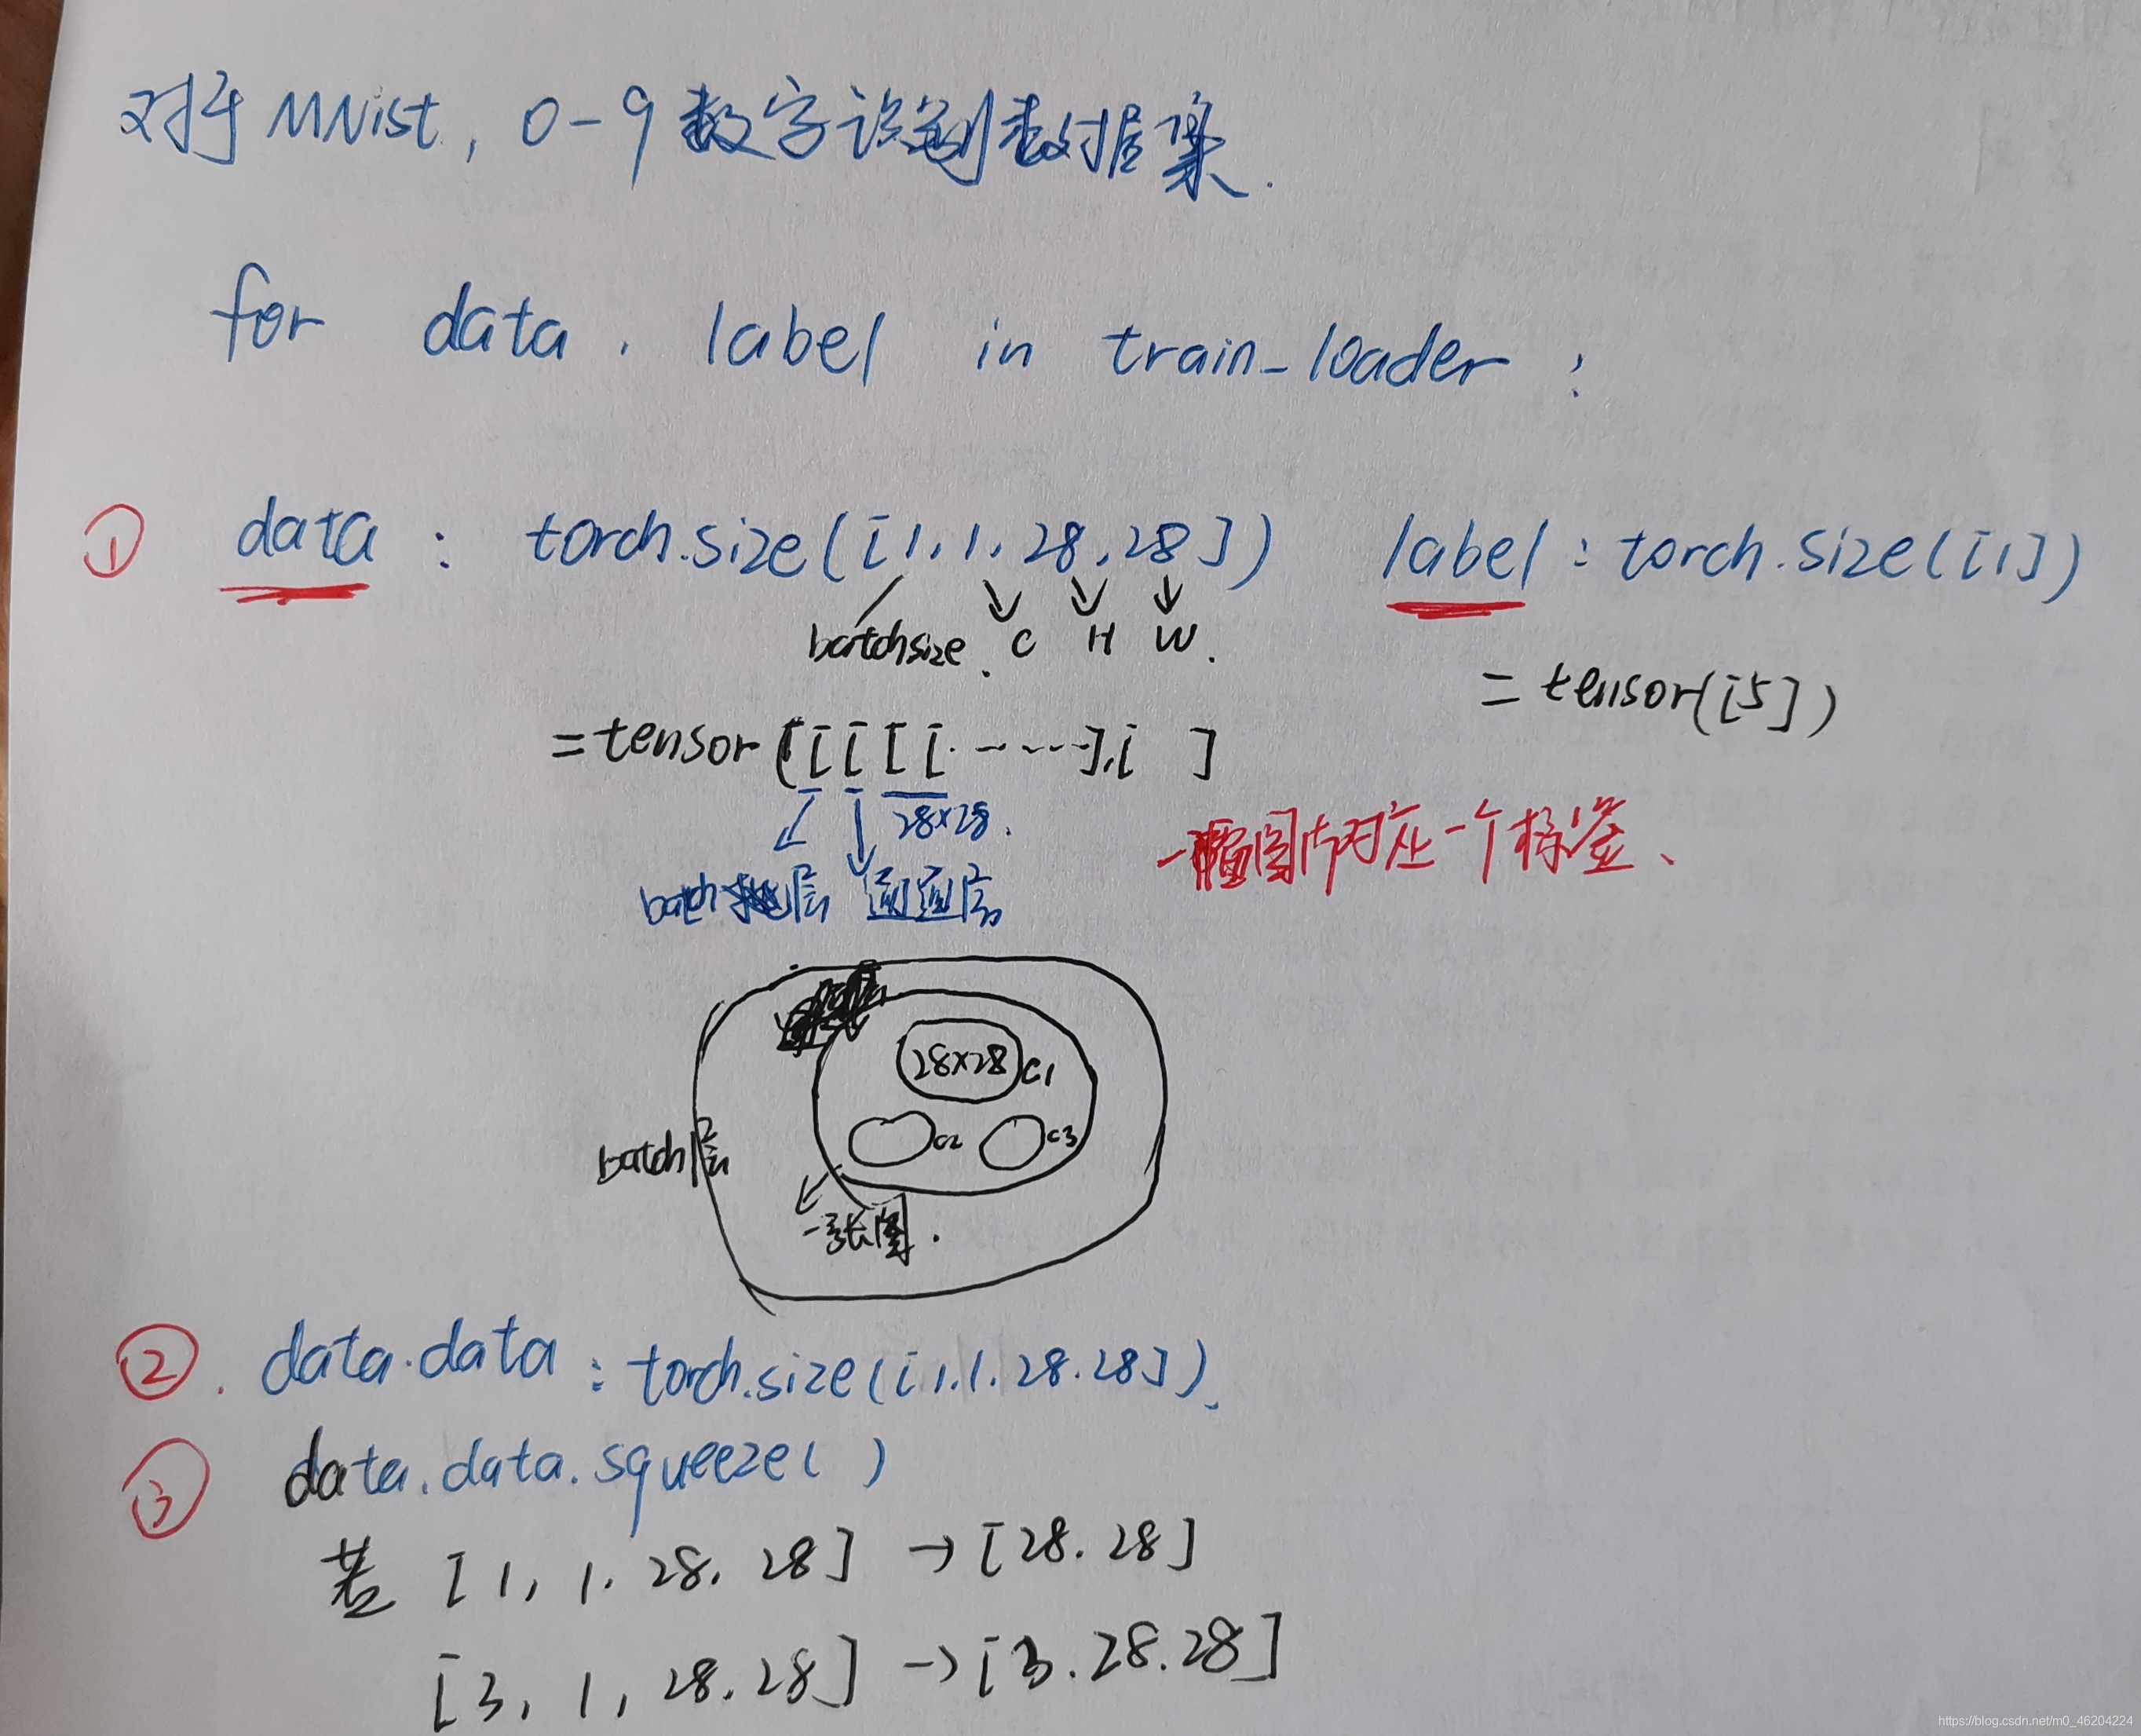 对于MNist, 0-9数字识别数据集.
for data, label in train_loader:
① data : torch.size([1,1,28,28]) label : torch.size([1])
batchsize. C H W.
= tensor([5])
= tensor([[[[[.-----],[ ]
28×28.
batch层 通道层
一幅图片对应一个标签、
28×28 C1
C2 C3
batch层
一张图.
②. data.data : torch.size([1,1.28.28]).
③ data.data.squeeze()
若 [1, 1. 28. 28] → [28. 28]
[3, 1, 28.28] → [3.28.28]
https://blog.csdn.net/m0_46204224